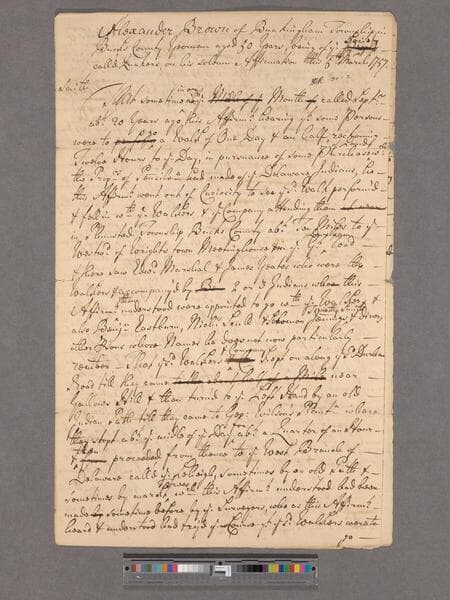 Alexander Brown of Buckingham Township in
Bucks County Yeoman aged 50 Years, being of yͤ Society
called Quakers, on his solemn Affirmation this March 1757.
Saith
That sometime in or Month called Septͬ
abͭ 20 Years ago this Affirmͭ hearing yͭ some Persons
were to a Walk of One Day & an half reckoning
Twelve Hours to yͤ Day, in pursuance of some Purchase
the Propͬˢ of had made of yͤ Delaware Indians, he
this Affirmͭ went out of Curiosity to see yͤ Walk perform'd
& fell in wͭʰ yͤ Walkers & yͤ Company attending them
in Plumsted Township Bucks County abͭ Miles to yͤ
Westwͩ of Wrights town Meetinghouse yͤ Road
& there saw Edwͩ Marshal & James Yeates who were the
Walkers & accompany'd by 2 or 3 Indians whom this
Affirmͭ understood were appointed to go wͭʰ yͤ Walkers &
also Benjͣ Eastburn, Nichͦ Scull & Solomon Jennings & divers
other Psons whose Names he does not now particularly
remember — That yͤ sͩ Walkers kept on along yͤ Durham
Road till they came near
Gallows Hill & then turned to yͤ Left Hand by an old
Indian Path till they came to Geo: Wilson's Plantⁿ where
they stopt abͭ yͤ middle of yͤ Day for abͭ a Quarter of an Hour
& then proceeded from thence to yͤ West Branch of
Delaware called yͤ Leheigh, sometimes by an old Path &
sometimes by marked Trees wͨʰ this Affirmͭ understood had been
made sometime before by yͤ Surveyors, who as this Affirmͭ
heard & understood had try'd yͤ Course yͭ yͤ sͩ Walkers were to
go —